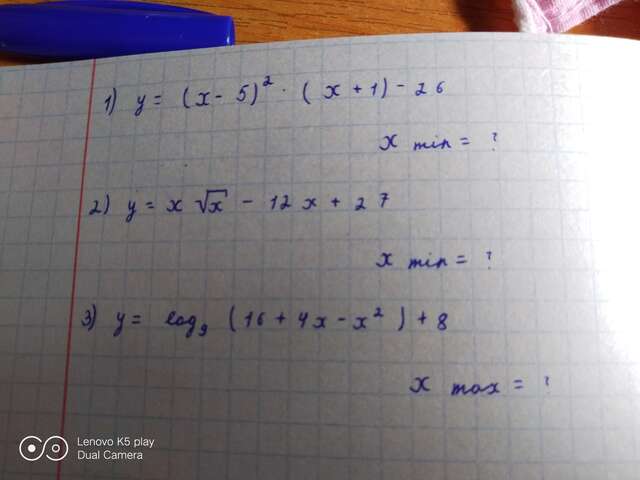 1) y = (x - 5)² · (x + 1) - 26
x min = ?
2) y = x √x - 12x + 27
x min = ?
3) y = log₉ (16 + 4x - x²) + 8
x max = ?
Lenovo K5 play
Dual Camera